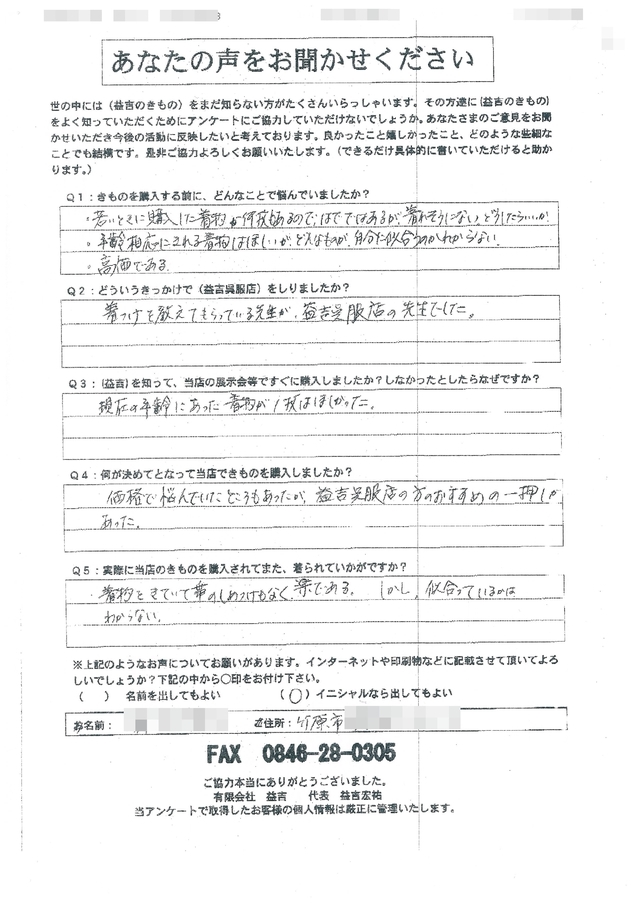 あなたの声をお聞かせください
世の中には（益吉のきもの）をまだ知らない方がたくさんいらっしゃいます。その方達に（益吉のきもの）
をよく知っていただくためにアンケートにご協力していただけないでしょうか。あなたさまのご意見をお聞
かせいただき今後の活動に反映したいと考えております。良かったこと嬉しかったこと、どのような些細な
ことでも結構です。是非ご協力よろしくお願いいたします。（できるだけ具体的に書いていただけると助か
ります。）
Q1：きものを購入する前に、どんなことで悩んでいましたか？
・若いときに購入した着物が何枚かあるのではでではあるが、着れそうにない、どうしたらいいか
・年齢相応にきれる着物はほしいが、どんなものが、自分に似合うのかわからない
・高価である
Q2：どういうきっかけで（益吉呉服店）をしりましたか？
着つけを教えてもらっている先生が、益吉呉服店の先生でした。
Q3：（益吉）を知って、当店の展示会等ですぐに購入しましたか？しなかったとしたらなぜですか？
現在の年齢にあった着物が1枚はほしかった。
Q4：何が決めてとなって当店できものを購入しましたか？
価格で悩んでいたところもあったが、益吉呉服店の方のおすすめの一押しが
あった。
Q5：実際に当店のきものを購入されてまた、着られていかがですか？
・着物をきていて帯のしめつけもなく、楽である。しかし、似合っているかは
わからない。
※上記のようなお声についてお願いがあります。インターネットや印刷物などに記載させて頂いてよろ
しいでしょうか？下記の中から○印をお付け下さい。
（　）名前を出してもよい　（○）イニシャルなら出してもよい
お名前：　ご住所：竹原市
FAX 0846-28-0305
ご協力本当にありがとうございました。
有限会社　益吉　代表　益吉宏祐
当アンケートで取得したお客様の個人情報は厳正に管理いたします。